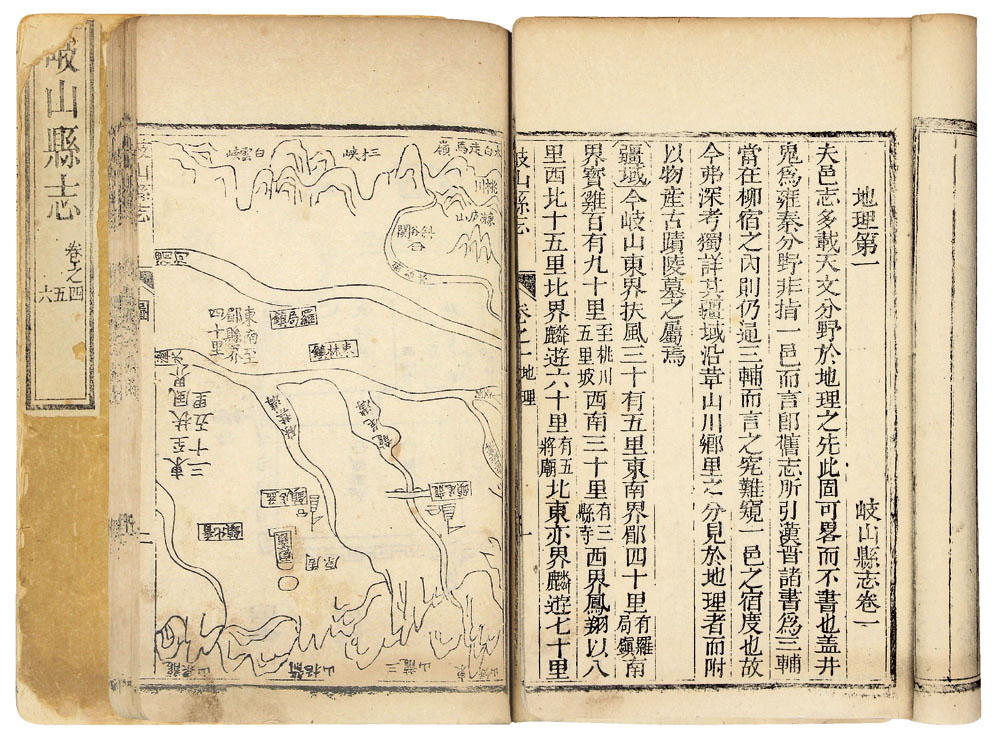 岐山縣志
卷之四
五
六
地理第一
岐山縣志卷一
夫邑志多載天文分野於地理之先此固可畧而不書也盖井
鬼為雍秦分野非指一邑而言卽舊志所引漢晋諸書為三輔
當在柳宿之內則仍逼三輔而言之究難窺一邑之宿度也故
今弗深考獨詳其疆域沿革山川鄉里之分見於地理者而附
以物産古蹟陵墓之屬焉
疆域今岐山東界扶風三十有五里東南界郿四十里有羅局鎮南
界寳雞百有九十里至桃川五里坡西南三十里有三縣寺西界鳳翔以八
里西北十五里比界麟遊六十里有五將廟北東亦界麟遊七十里
岐山縣志
卷之一地理
一
太白走馬嶺
三才峽
白雲峽
桃川
斜谷關
羅局鎮
東南至郿縣界四十里
棗林鎮
東至扶風界
三十五里
龍尾溝
龍尾鎮
周原
益店鎮
三龍山
箭括
山
岐山縣志
二